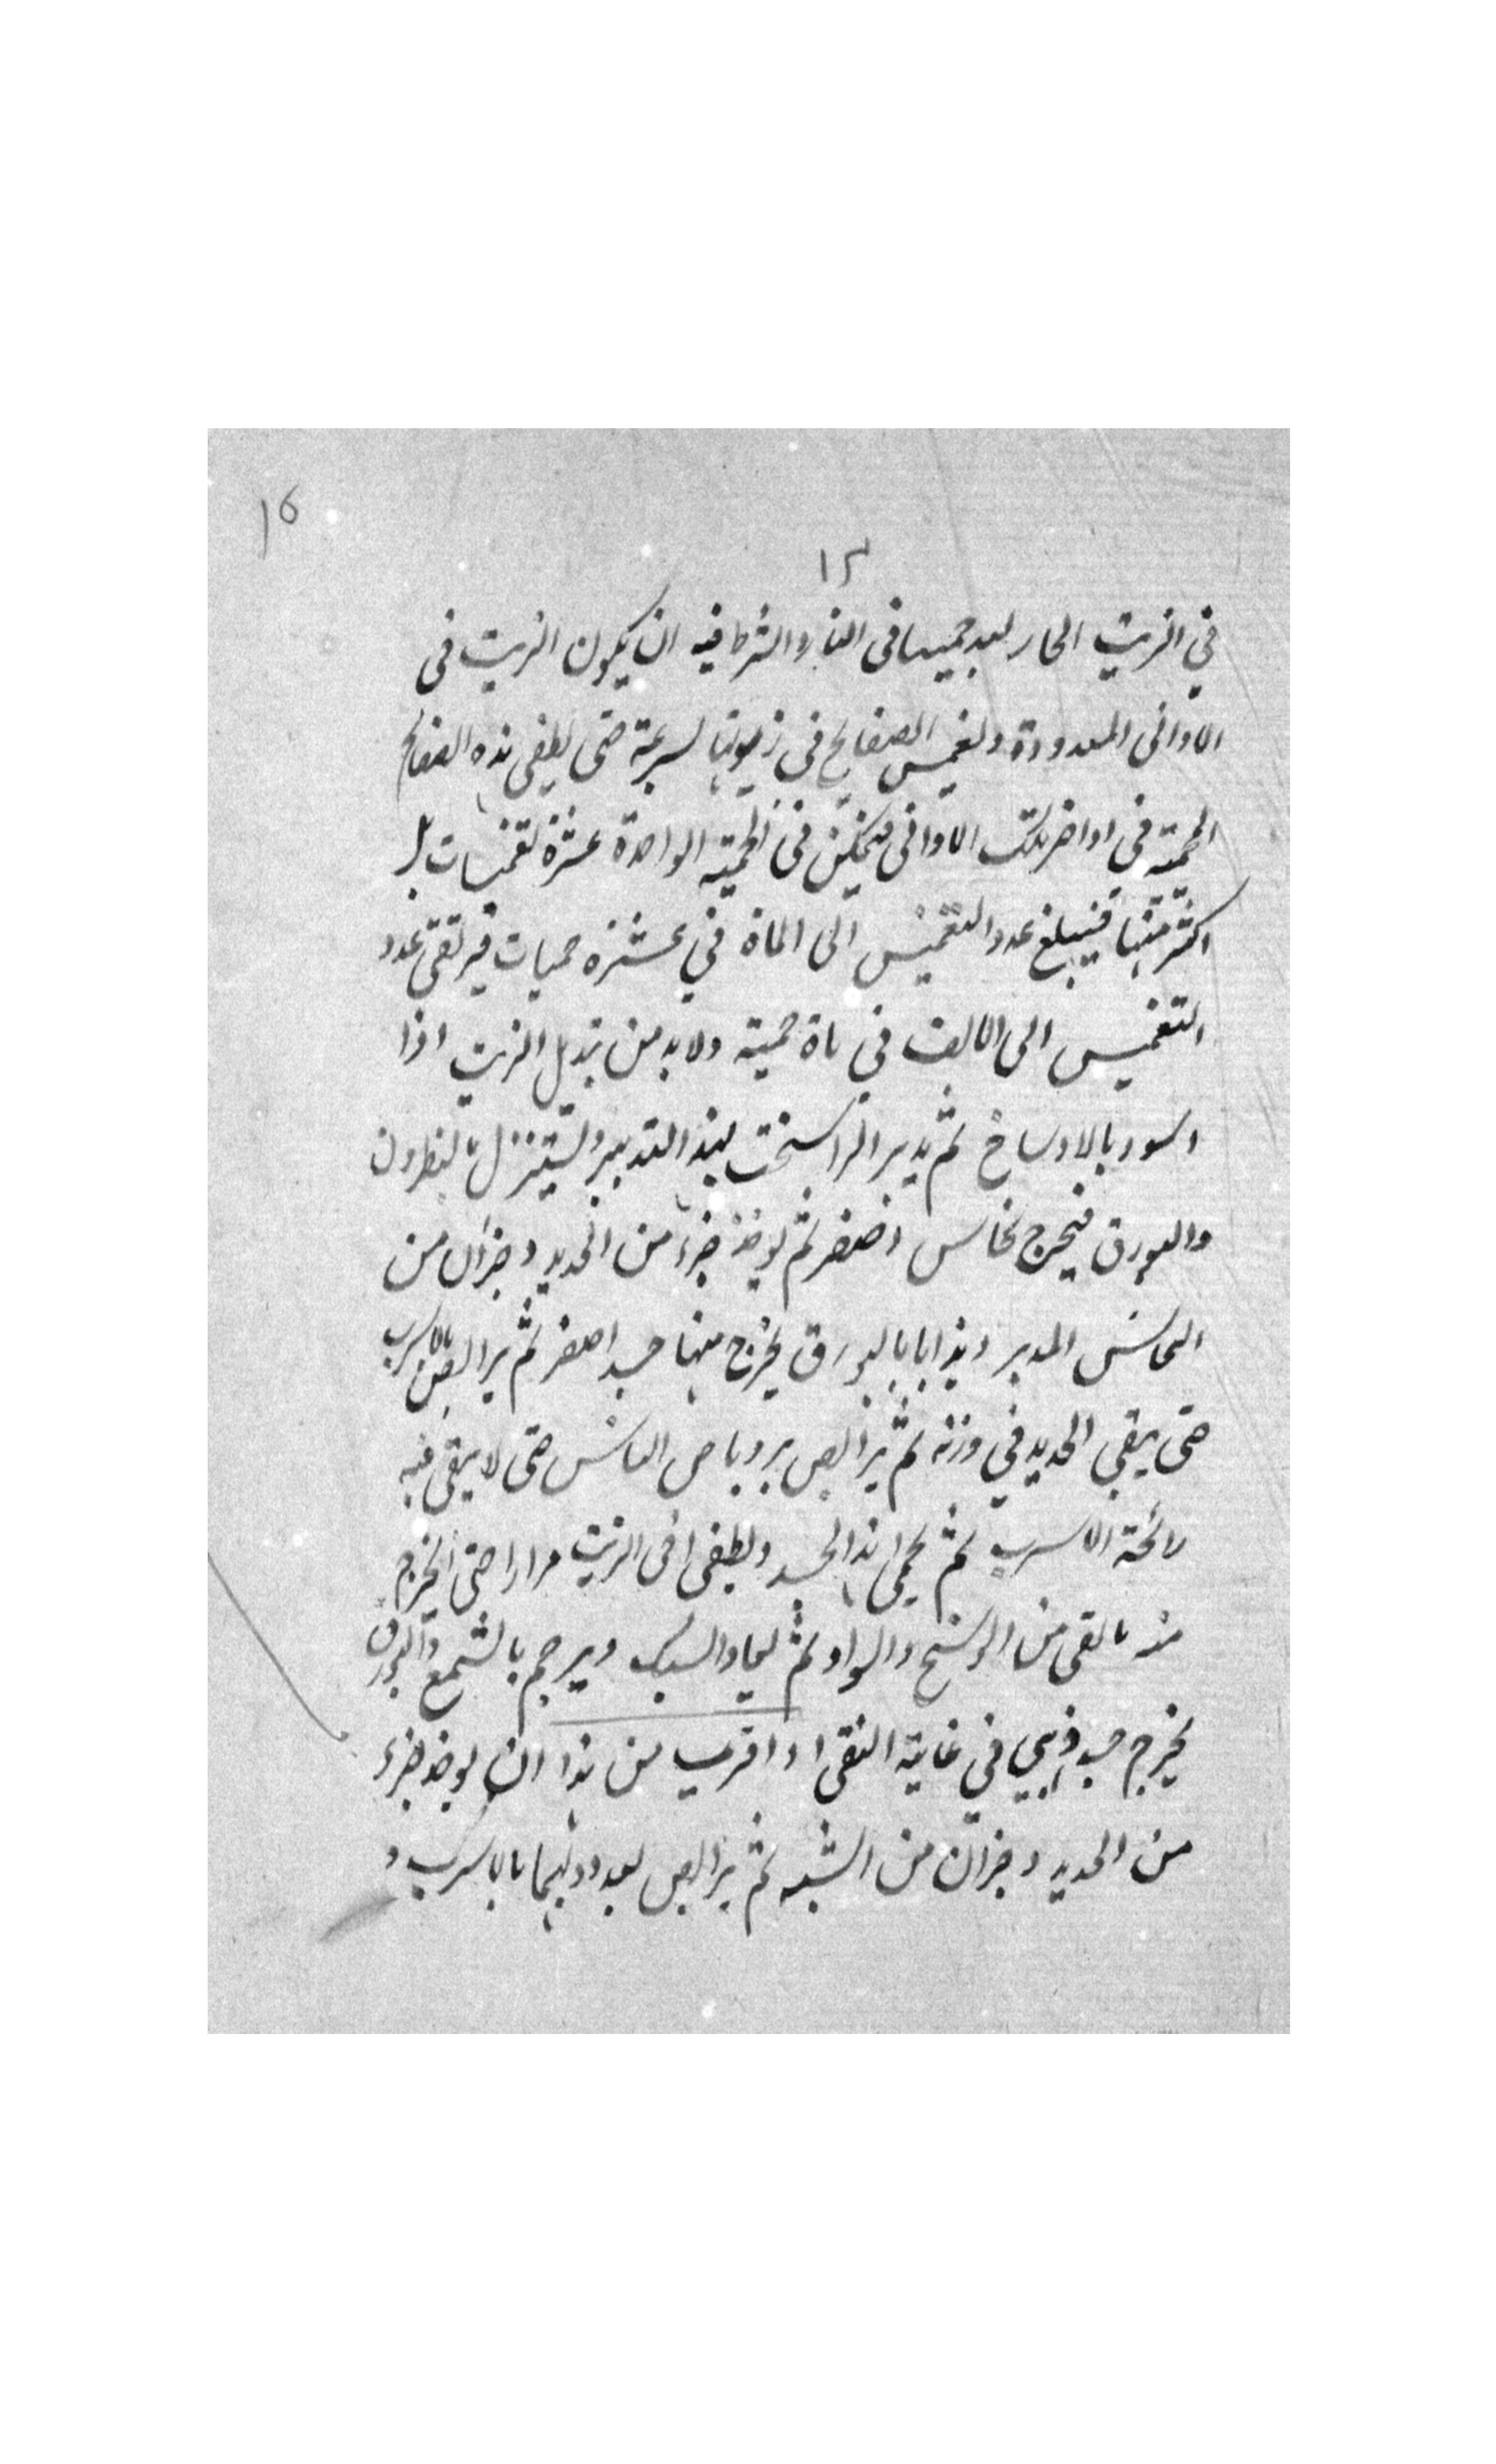 ١٥
١٢
في الزيت الحار بعد حميها فى النار والشرط فيه ان يكون الزيت فى
الاوانى المعدودة وتغمس الصفايح فى زيوتها بسرعة حتى يطفى هذه الصفايح
المحمية فى اواخر تلك الاوانى فيمكن فى الحمية الواحدة عشرة تغميسات بل
اكثر منها فيبلغ عدد التغميس الى الماة في عشرة حميات فيرتقى عدد
التغميس الى الالف في ماة حمية ولابد من تبديل الزيت اذا
اسود بالاوساخ ثم يدبر الراسخت بهذا التدبير ويستنزل بالنطرون
والبورق فيخرج نحاس اصفر ثم يوخذ جزء من الحديد وجزان من
النحاس المدبر ويذابا بالبورق يخرج منها جسد اصفر ثم يرالص بالاسرب
حتى يبقى الحديد في وزنه ثم يرالص بروباص الناس حتى لا يبقى فيه
رائحة الاسرب ثم يحمى هذا الجسد ويطفى فى الزيت مرارا حتى يخرج
منه ما بقى من الوسخ والسواد ثم يعاد السبك ويرجم بالشمع والبورق
يخرج جسد ذهبي في غاية النقى واقرب من هذا ان يوخذ جزء
من الحديد وجزان من الشبه ثم يرالص بعد ذوبهما بالاسرب و